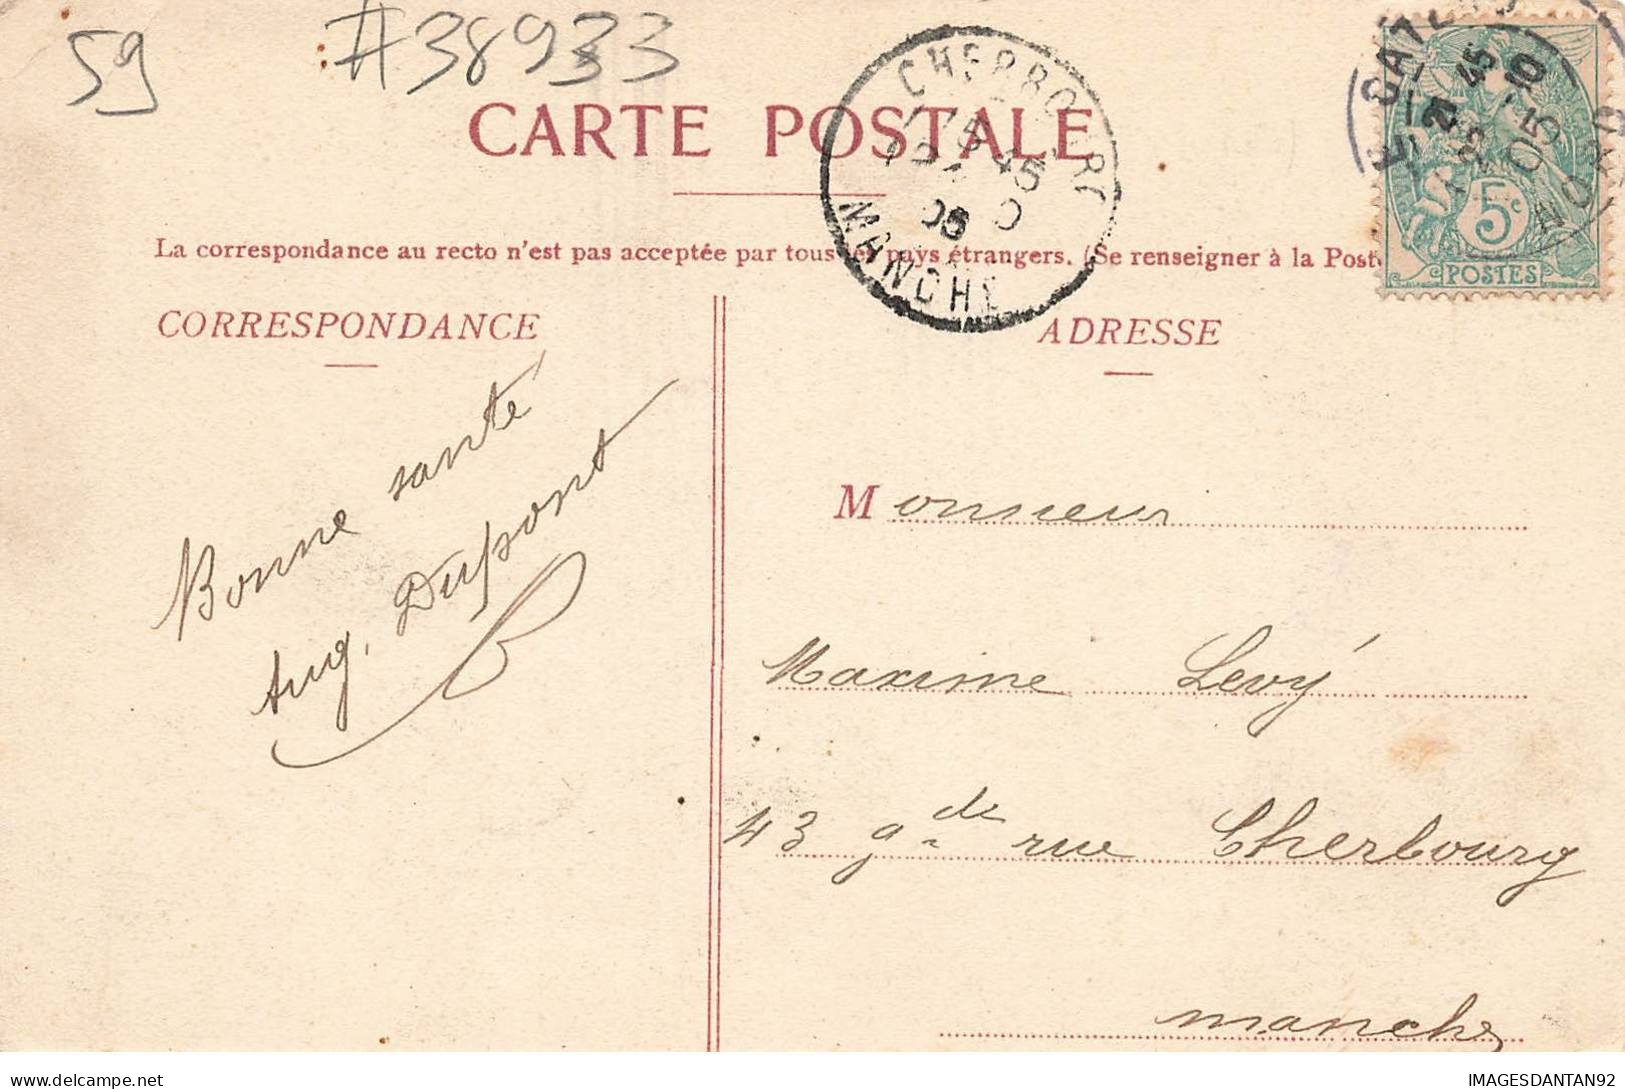 59
#38933
CARTE POSTALE
CHERBOURG
MANCHE
LE CATEAU
NORD
5c
POSTES
La correspondance au recto n'est pas acceptée par tous les pays étrangers. (Se renseigner à la Post
CORRESPONDANCE
ADRESSE
Bonne santé
Aug. Dupont
Monsieur
Maxime Levý
43 gde rue Cherbourg
Manche
IMAGESDANTAN92